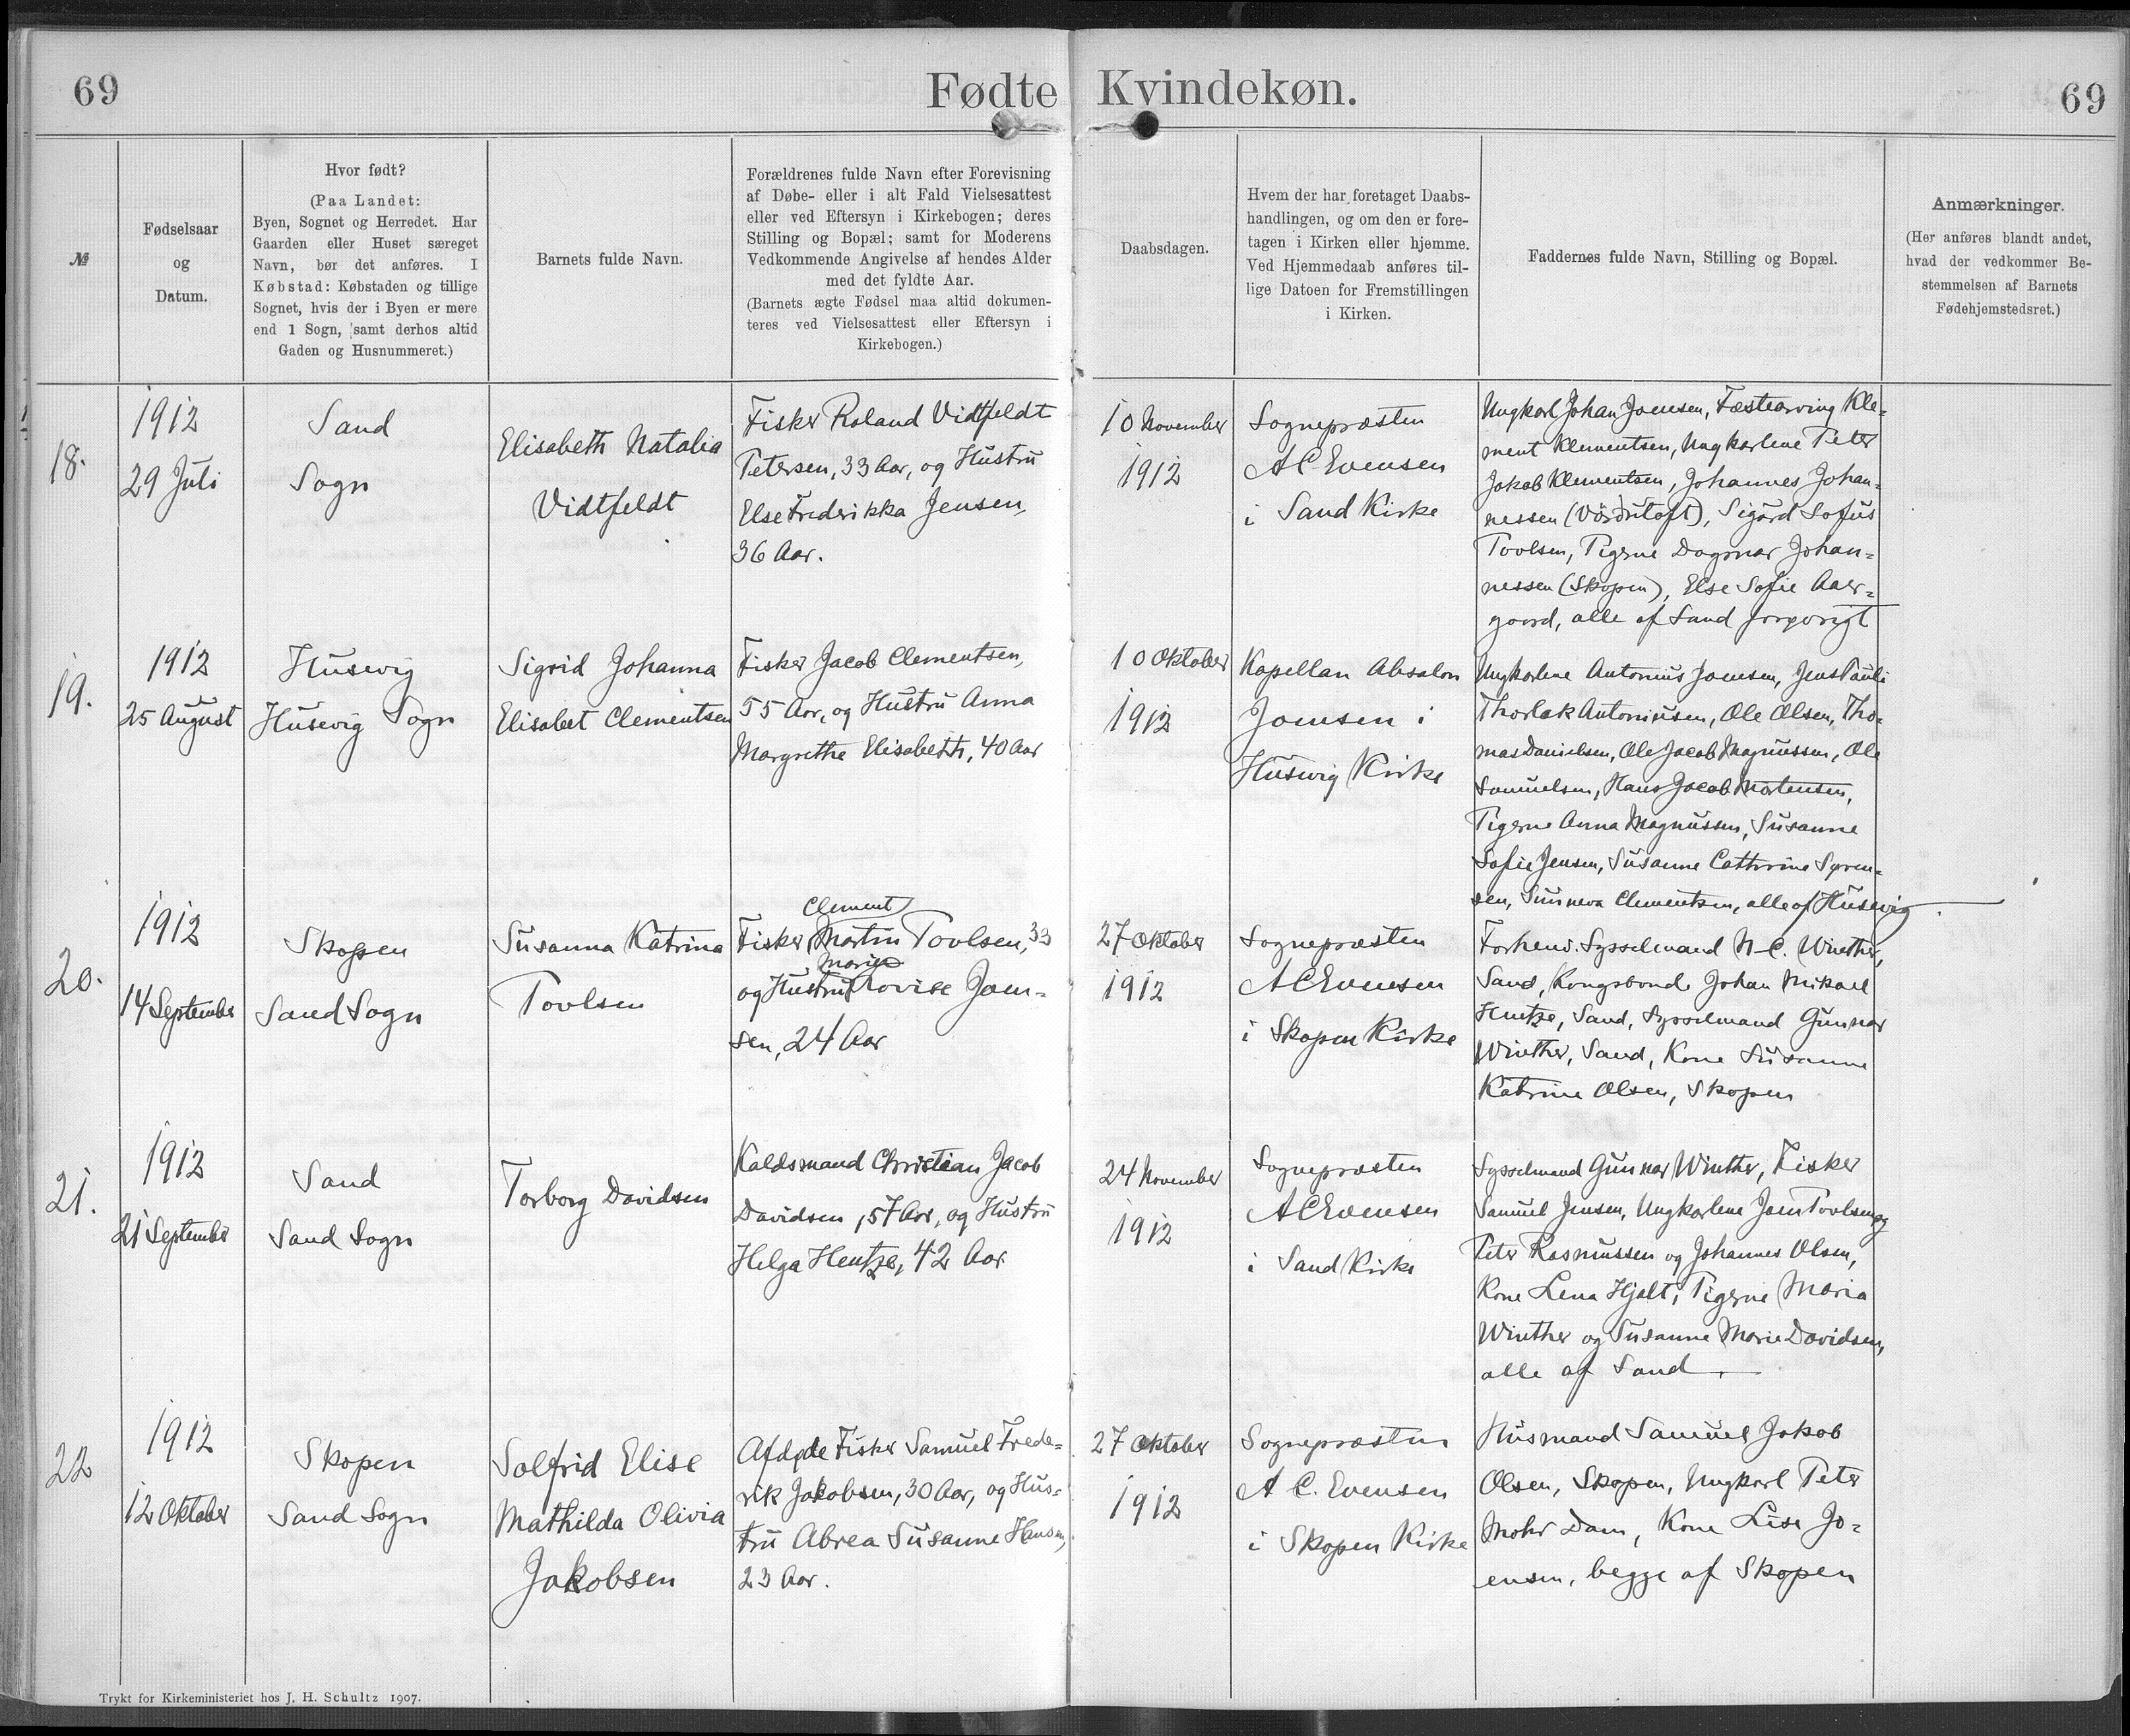 69
Fødte Kvindekøn.
69
№
Fødselsaar
og
Datum.
Hvor født?
(Paa Landet:
Byen, Sognet og Herredet. Har
Gaarden eller Huset særeget
Navn, bør det anføres. I
Købstad: Købstaden og tillige
Sognet, hvis der i Byen er mere
end 1 Sogn, samt derhos altid
Gaden og Husnummeret.)
Barnets fulde Navn.
Forældrenes fulde Navn efter Forevisning
af Døbe- eller i alt Fald Vielsesattest
eller ved Eftersyn i Kirkebogen; deres
Stilling og Bopæl; samt for Moderens
Vedkommende Angivelse af hendes Alder
med det fyldte Aar.
(Barnets ægte Fødsel maa altid dokumen-
teres ved Vielsesattest eller Eftersyn i
Kirkebogen.)
Daabsdagen.
Hvem der har foretaget Daabs-
handlingen, og om den er fore-
tagen i Kirken eller hjemme.
Ved Hjemmedaab anføres til-
lige Datoen for Fremstillingen
i Kirken.
Faddernes fulde Navn, Stilling og Bopæl.
Anmærkninger.
(Her anføres blandt andet,
hvad der vedkommer Be-
stemmelsen af Barnets
Fødehjemstedsret.)
18.
1912
29 Juli
Sand
Sogn
Elisabeth Natalia
Vidtfeldt
Fisker Roland Vidtfeldt
Petersen, 33 Aar, og Hustru
Else Frederikka Jensen,
36 Aar.
10 November
1912
Sognepræsten
A C Evensen
i Sand Kirke
Ungkarl Johan Joensen, Fæstearving Kle=
ment Klementsen, Ungkarlene Peter
Jakob Klementsen, Johannes Johan=
nessen (Vörðutoft), Sigurd Sofus
Poulsen, Pigerne Dagmar Johan=
nessen (Skopen), Else Sofie Aar=
gaard, alle af Sand forøvrigt
19.
1912
25 August
Husevig
Husevig Sogn
Sigrid Johanna
Elisabet Clementsen
Fisker Jacob Clementsen,
55 Aar, og Hustru Anna
Margrethe Elisabeth, 40 Aar
10 Oktober
1912
Kapellan Absalon
Joensen i
Husevig Kirke
Ungkarlene Antonius Joensen, Jens Pauli
Thorlak Antoniusen, Ole Olsen, Tho=
mas Danielsen, Ole Jacob Magnussen, Ole
Samuelsen, Hans Jacob Mortensen,
Pigerne Anna Magnussen, Susanne
Sofie Jensen, Susanne Cathrine Søren=
sen, Sunneva Clementsen, alle af Husevig
20.
1912
14 September
Skopen
Sand Sogn
Susanna Katrina
Poulsen
Clement
Fisker Martin Poulsen, 33
Marie
og Hustru Lovise Joen=
sen, 24 Aar
27 Oktober
1912
Sognepræsten
A C Evensen
i Skopen Kirke
Forhenv. Sysselmand N-C. Winther,
Sand, Kongsbonde Johan Mikael
Hentze, Sand, Sysselmand Gunnar
Winther, Sand, Kone Susanne
Katrine Olsen, Skopen
21.
1912
21 September
Sand
Sand Sogn
Torborg Davidsen
Christian Jacob
Davidsen, 57 Aar, og Hustru
Helga Hentze, 42 Aar
24 November
1912
Sognepræsten
A C Evensen
i Sand Kirke
Sysselmand Gunnar Winther, Fisker
Samuel Jensen, Ungkarlene Joen Poulsen og
Peter Rasmussen og Johannes Olsen,
Kone Lena Hjalt, Pigerne Maria
Winther og Susanne Marie Davidsen,
alle af Sand
22
1912
12 Oktober
Skopen
Sand Sogn
Solfrid Elise
Mathilda Olivia
Jakobsen
Afdøde Fisker Samuel Frede=
rik Jakobsen, 30 Aar, og Hus=
tru Abrea Susanne Hansen,
23 Aar.
27 Oktober
1912
Sognepræsten
A C. Evensen
i Skopen Kirke
Husmand Samuel Jakob
Olsen, Skopen, Ungkarl Peter
Mohr Dam, Kone Lise Jo=
ensen, begge af Skopen
Trykt for Kirkeministeriet hos J. H. Schultz 1907.